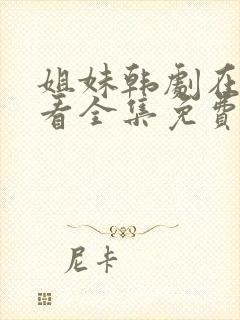 姐妹韩剧在
看全集免費
尼卡